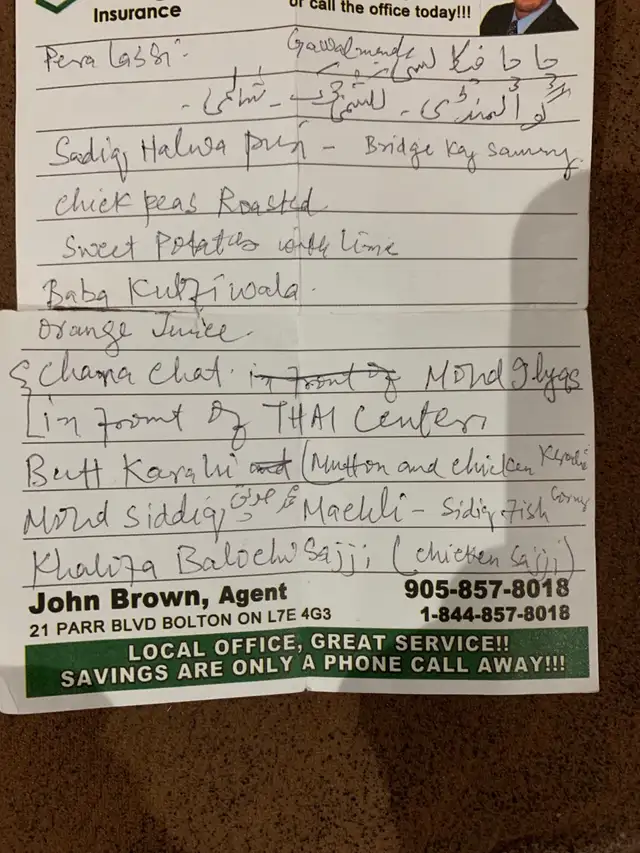 Insurance
or call the office today!!!
Pera Lassi. Gawalmandi چاچا فیکا لسی
گوالمنڈی - لکشمی چوک -
Sadiq Halwa puri - Bridge Kay Samny
Chick peas Roasted
Sweet Potatoes with lime
Baba Kulfi wala.
Orange Juice.
Chana Chat. in front of Mohd Ilyas
in front of THAI Center
Butt Karahi and (Mutton and chicken Karahi
Mohd Siddiq Machli - Sidiq Fish Corner
Khalifa Balochi Sajji (chicken Sajji)
John Brown, Agent 905-857-8018
21 PARR BLVD BOLTON ON L7E 4G3 1-844-857-8018
LOCAL OFFICE, GREAT SERVICE!!
SAVINGS ARE ONLY A PHONE CALL AWAY!!!